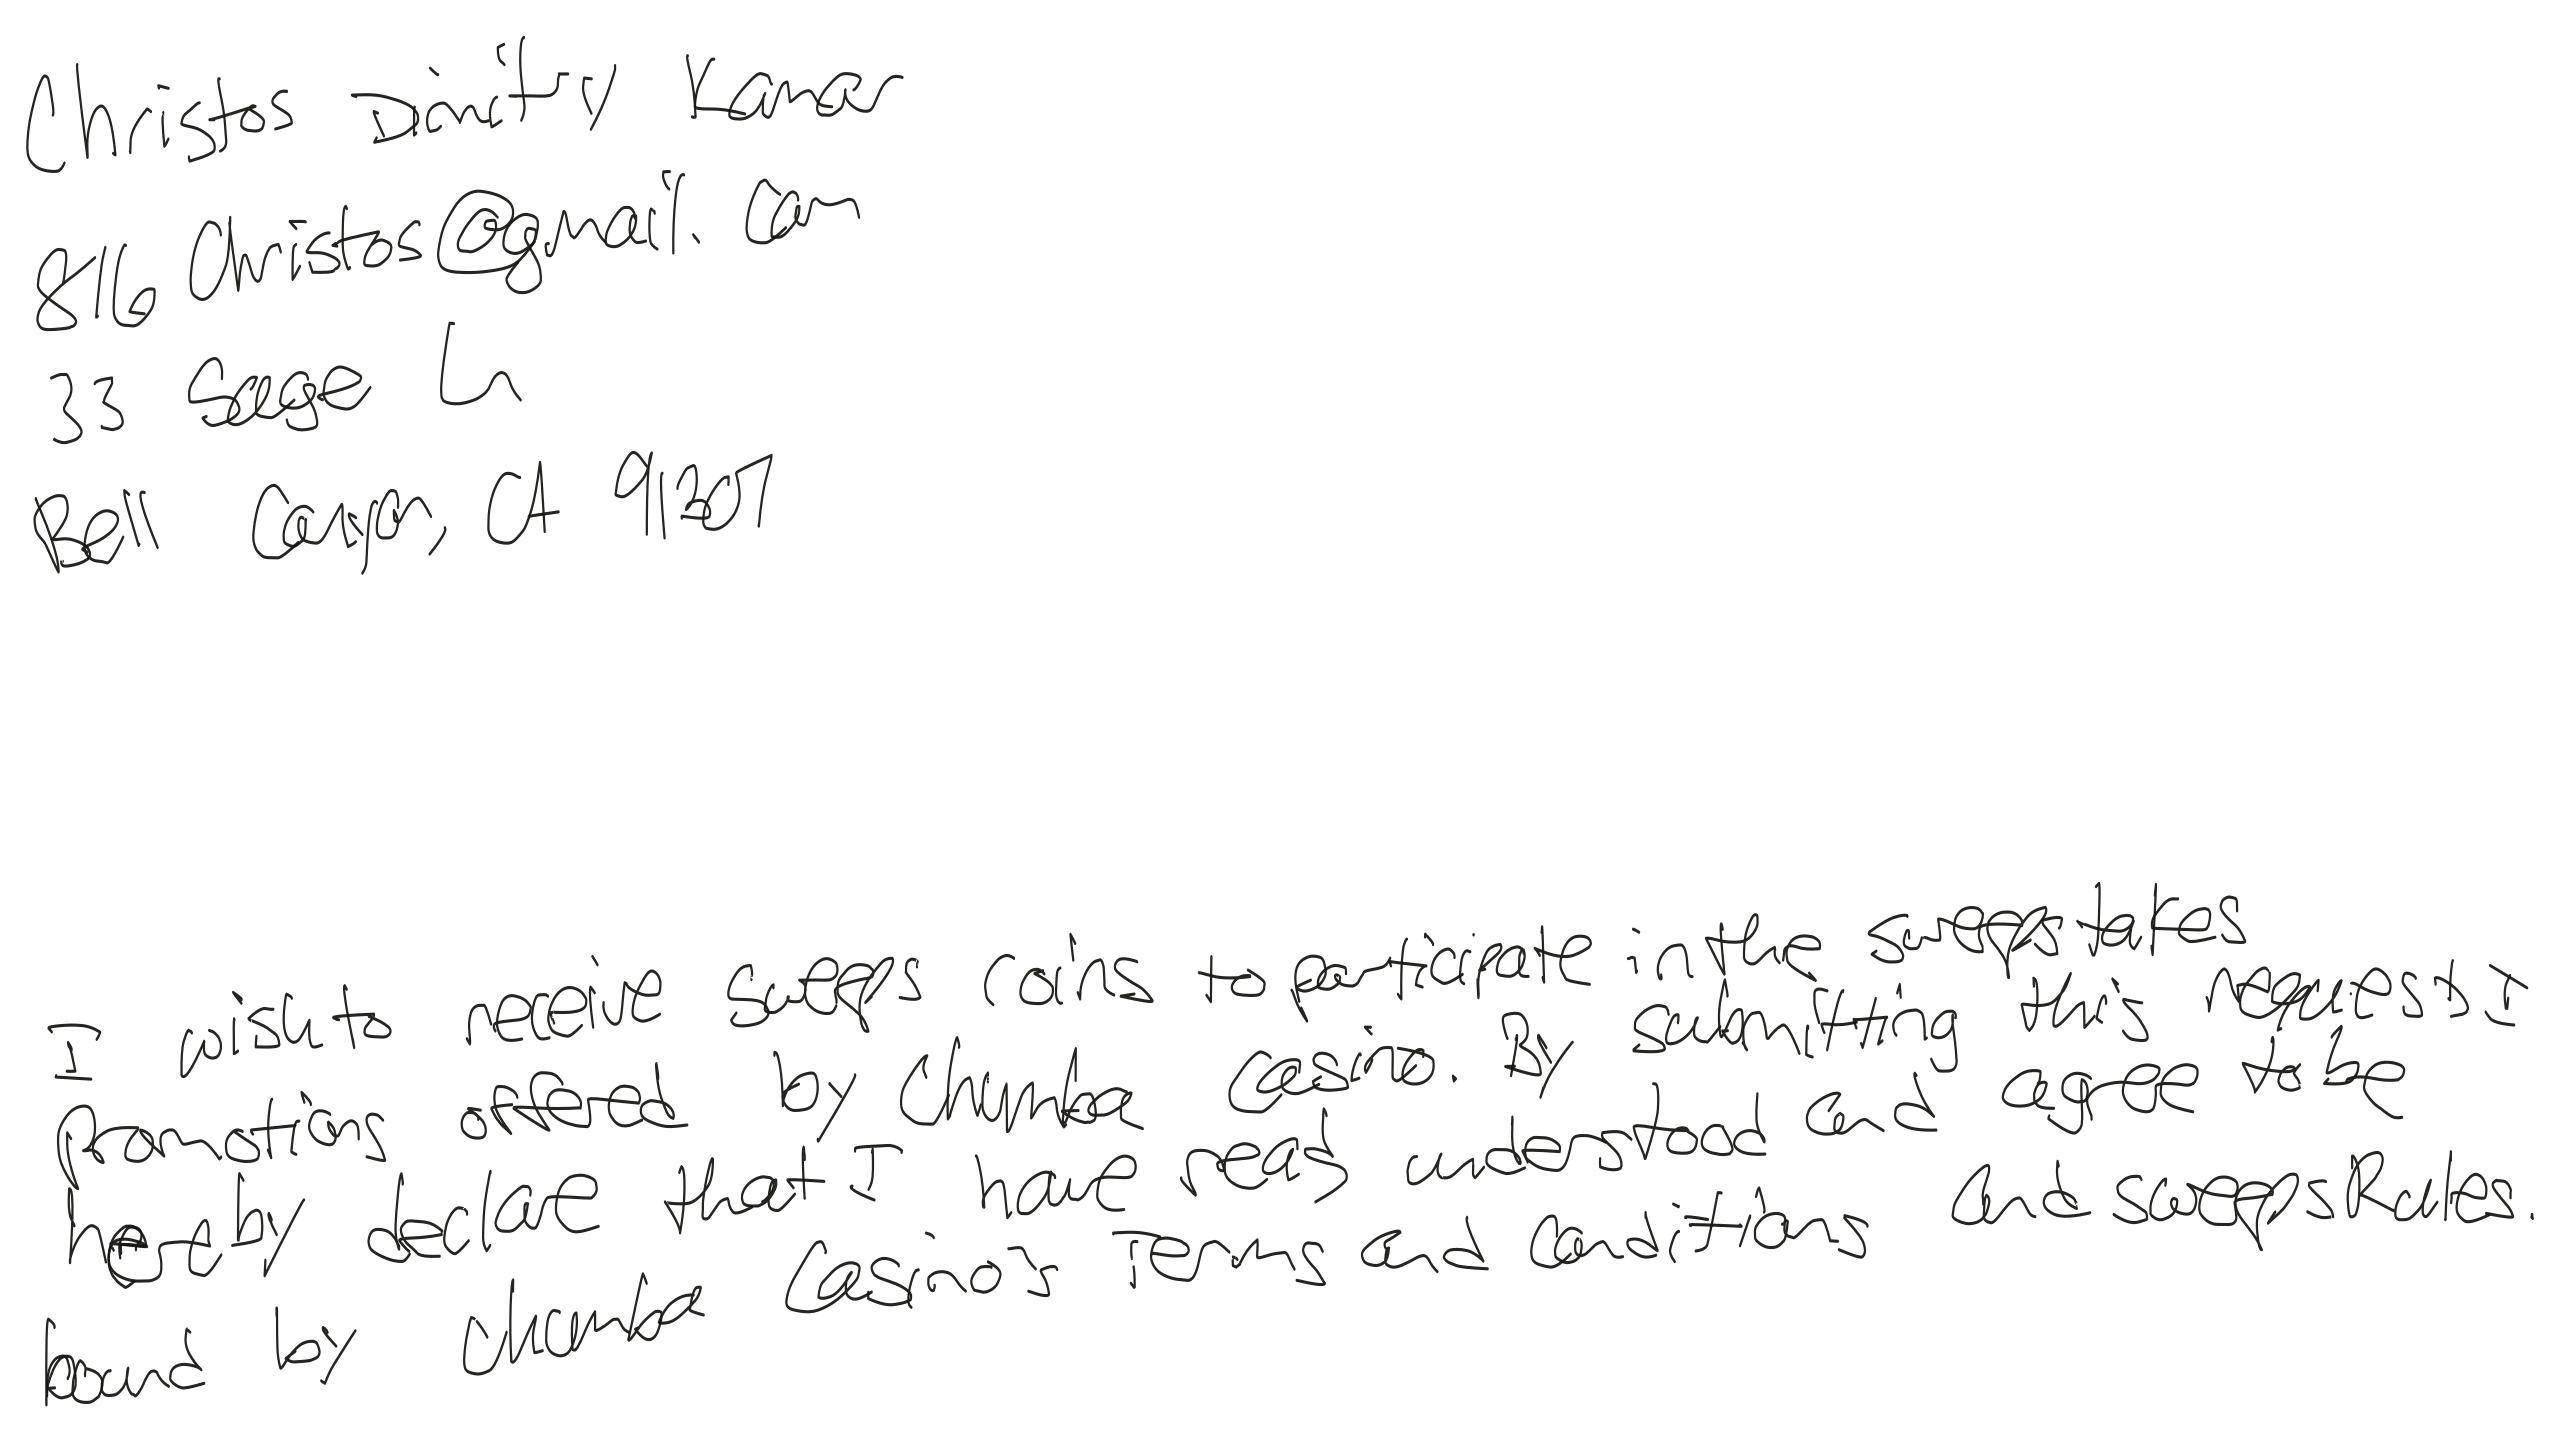 Christos Dimitry Kamar
816Christos@gmail.com
33 Sage Ln
Bell Canyon, CA 91307
I wish to receive sweeps coins to participate in the sweepstakes
promotions offered by Chumba Casino. By submitting this request I
hereby declare that I have read understood and agree to be
bound by Chumba Casino's Terms and Conditions and Sweeps Rules.